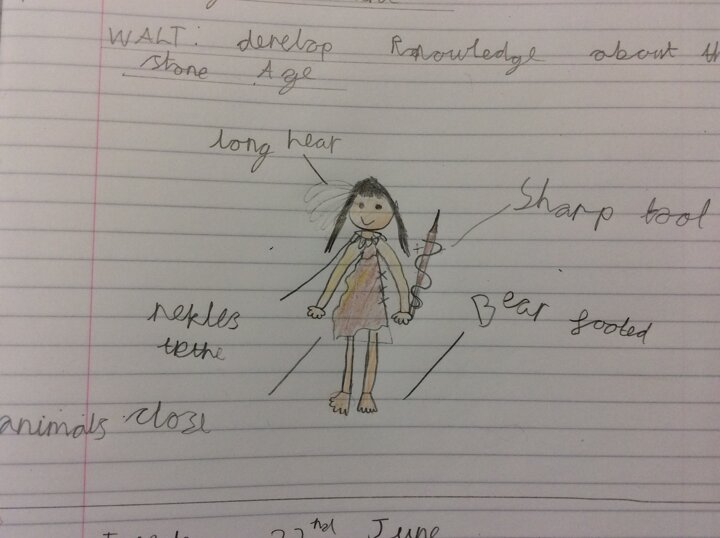 WALT: develop Knowledge about th
Stone Age
long hear
Sharp tool
nekles
Bear footed
animals close
22nd June